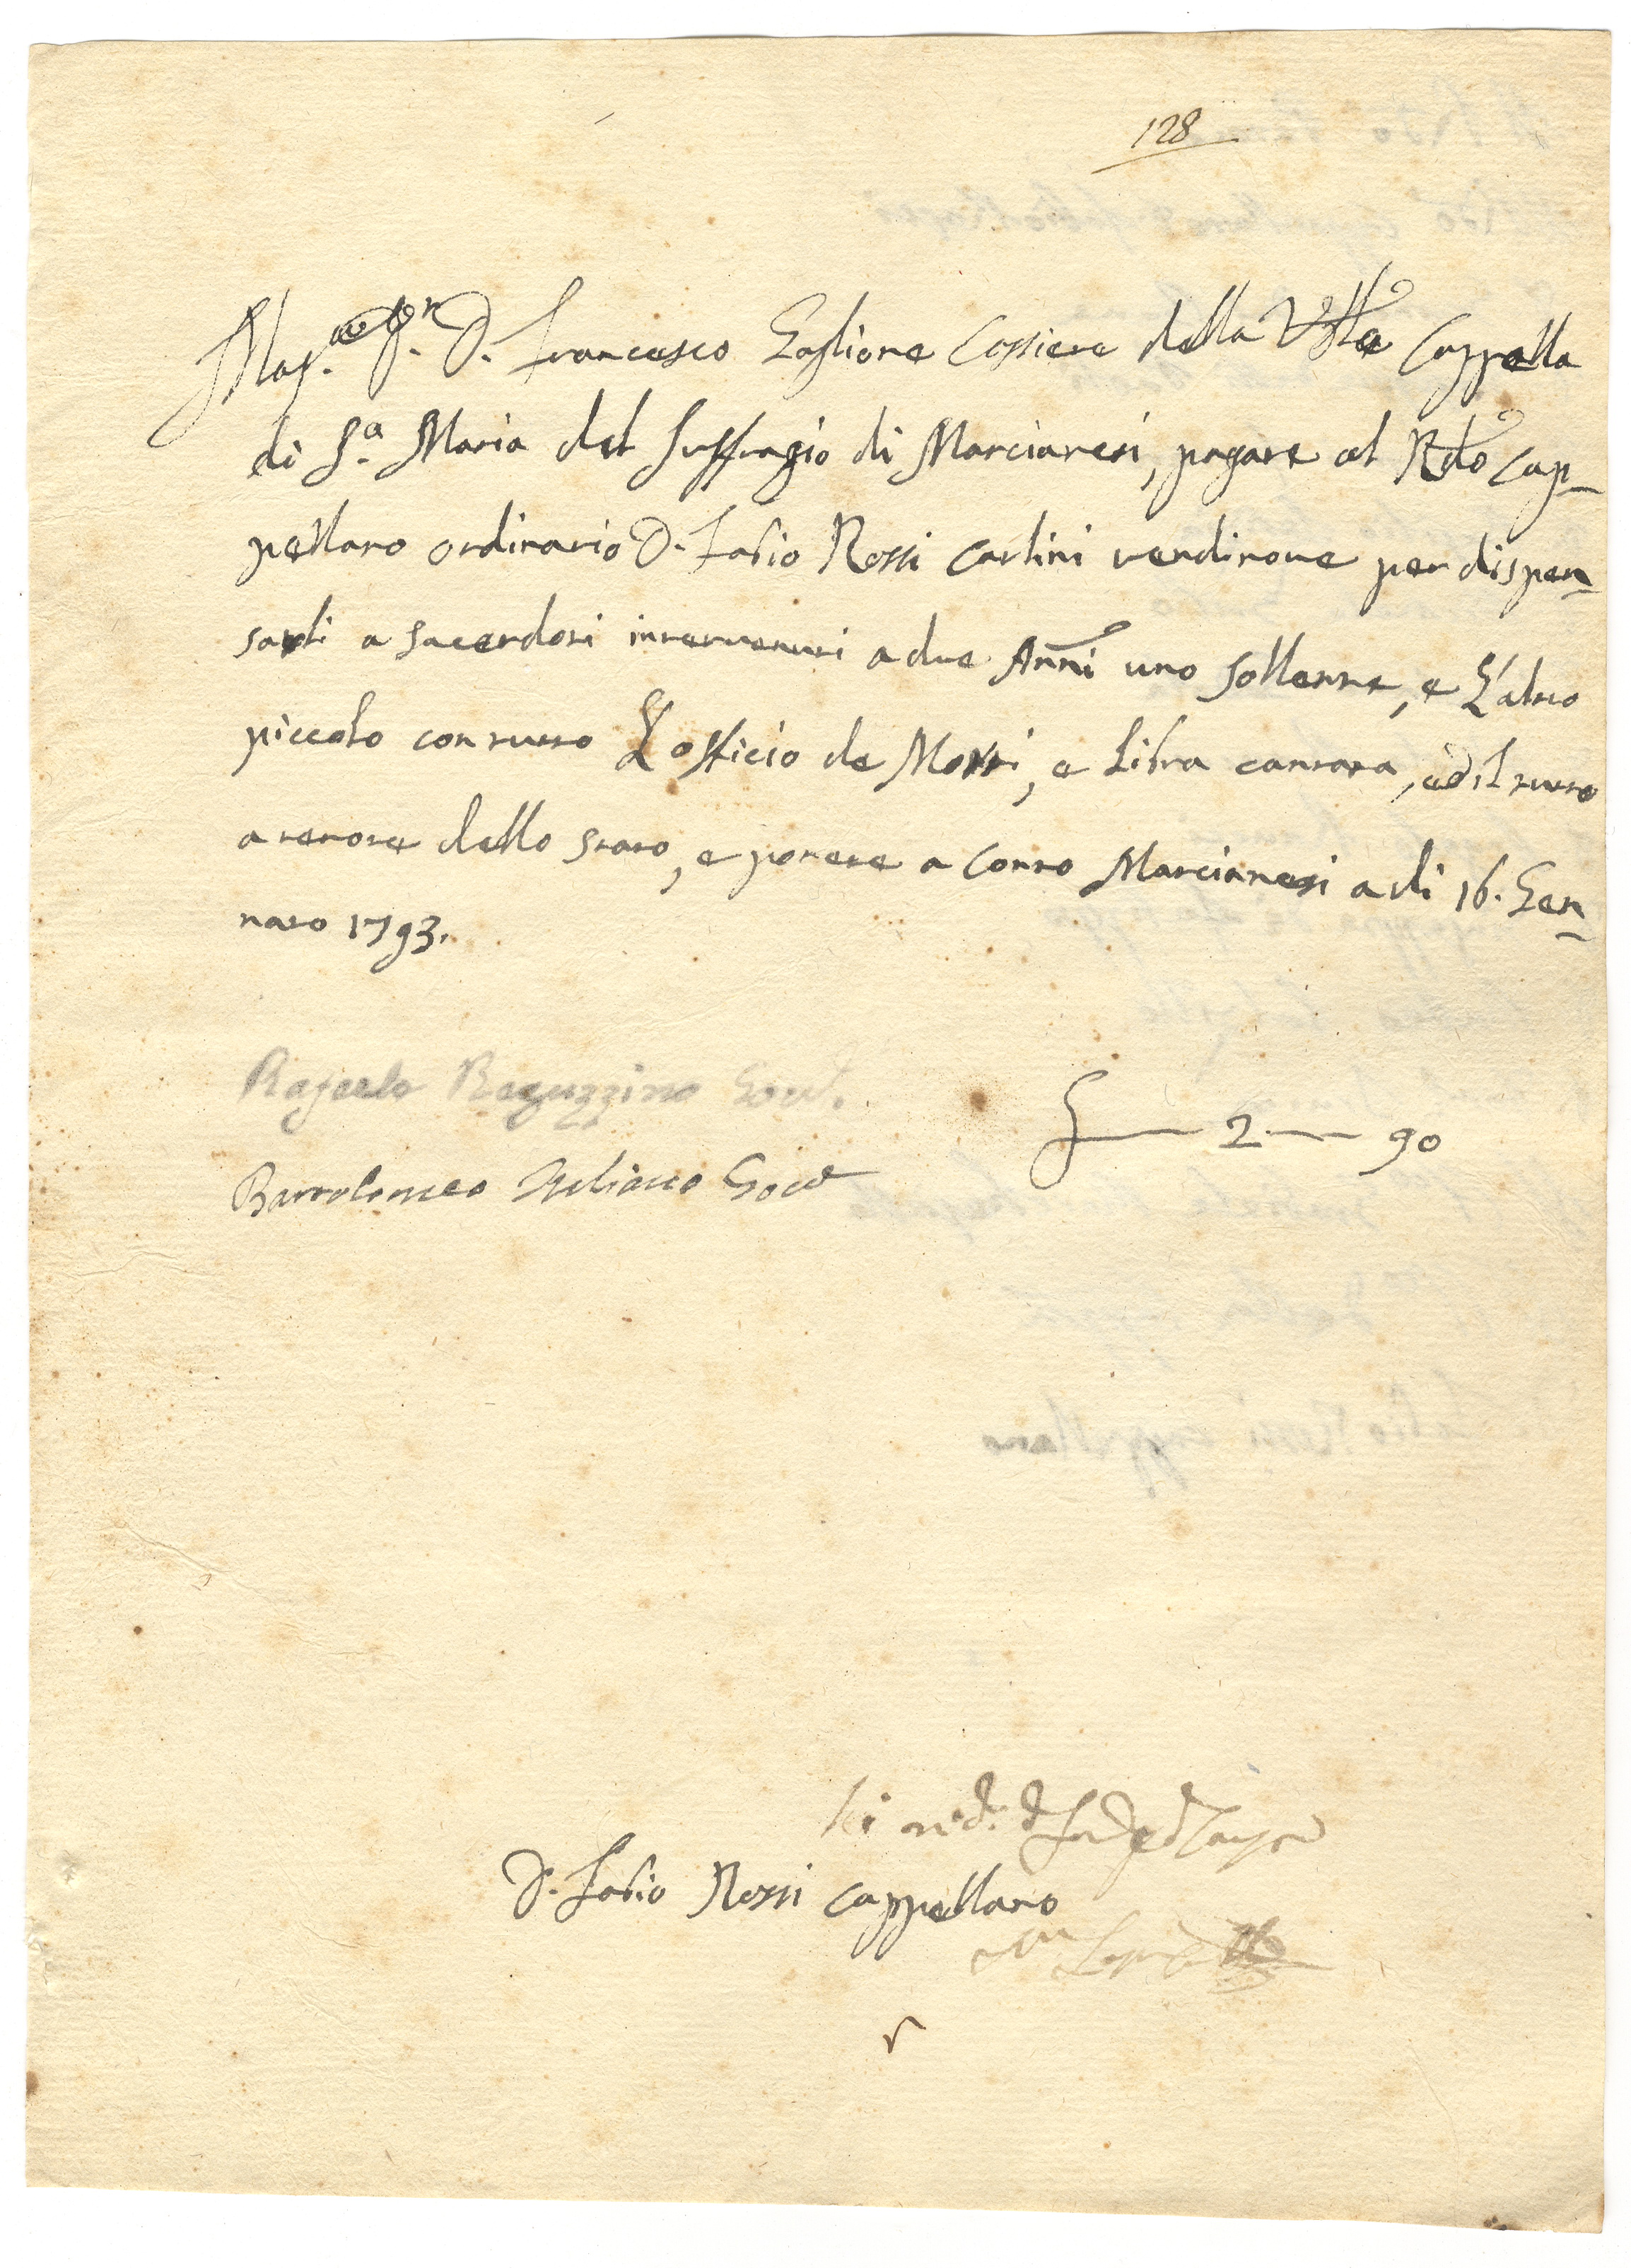 128
Mag.co Sr. D. Francesco Zaglione Cassiere della Vble Cappella
di S.a Maria del Suffragio di Marcianesi, pagate al Rdo Cap-
pellano ordinario D. Fabio Rossi Carlini ventinove per dispen-
sarli a sacerdoti intervenuti a due Anni uno sollenne, e L'altro
piccolo con tutto L'officio de Morti, e Libra cantata, ed il tutto
a tenore dello stato, e ponete a conto Marcianesi a di 16. Gen-
naro 1793.
Rafaele Raguzzino Govre.
Bartolomeo Gov
2 — 90
D. Fabio Rossi Cappellano